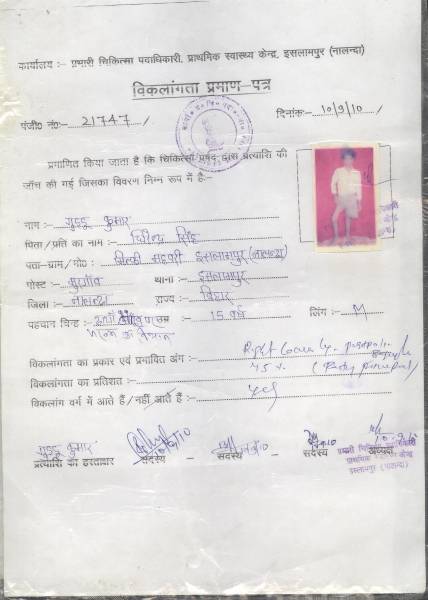 कार्यालय :- प्रभारी चिकित्सा पदाधिकारी, प्राथमिक स्वास्थ्य केन्द्र, इसलामपुर (नालन्दा)
विकलांगता प्रमाण-पत्र
पंजी० नं०:- 21747/ दिनांक:- 10/9/10/
प्रमाणित किया जाता है कि चिकित्सा पर्षद द्वारा प्रत्याशि की
जाँच की गई जिसका विवरण निम्न रूप में है:-
नाम :- गुड्डू कुमार
पिता/प्रति का नाम :- सिंह
पता-ग्राम/मो० :- इसलामपुर (नालन्दा)
पोस्ट :- थाना :- इसलामपुर
जिला :- नालन्दा राज्य :- बिहार
पहचान चिन्ह :- उम्र :- 15 वर्ष लिंग :- M
विकलांगता का प्रकार एवं प्रभावित अंग :- Right
विकलांगता का प्रतिशत :- 45%
विकलांग वर्ग में आते हैं / नहीं आते हैं :- yes
गुड्डू कुमार
प्रत्याशि का हस्ताक्षर सदस्य सदस्य सदस्य अध्यक्ष
प्रभारी चिकित्सा पदाधिकारी
प्राथमिक स्वास्थ्य केन्द्र
इसलामपुर (नालन्दा)